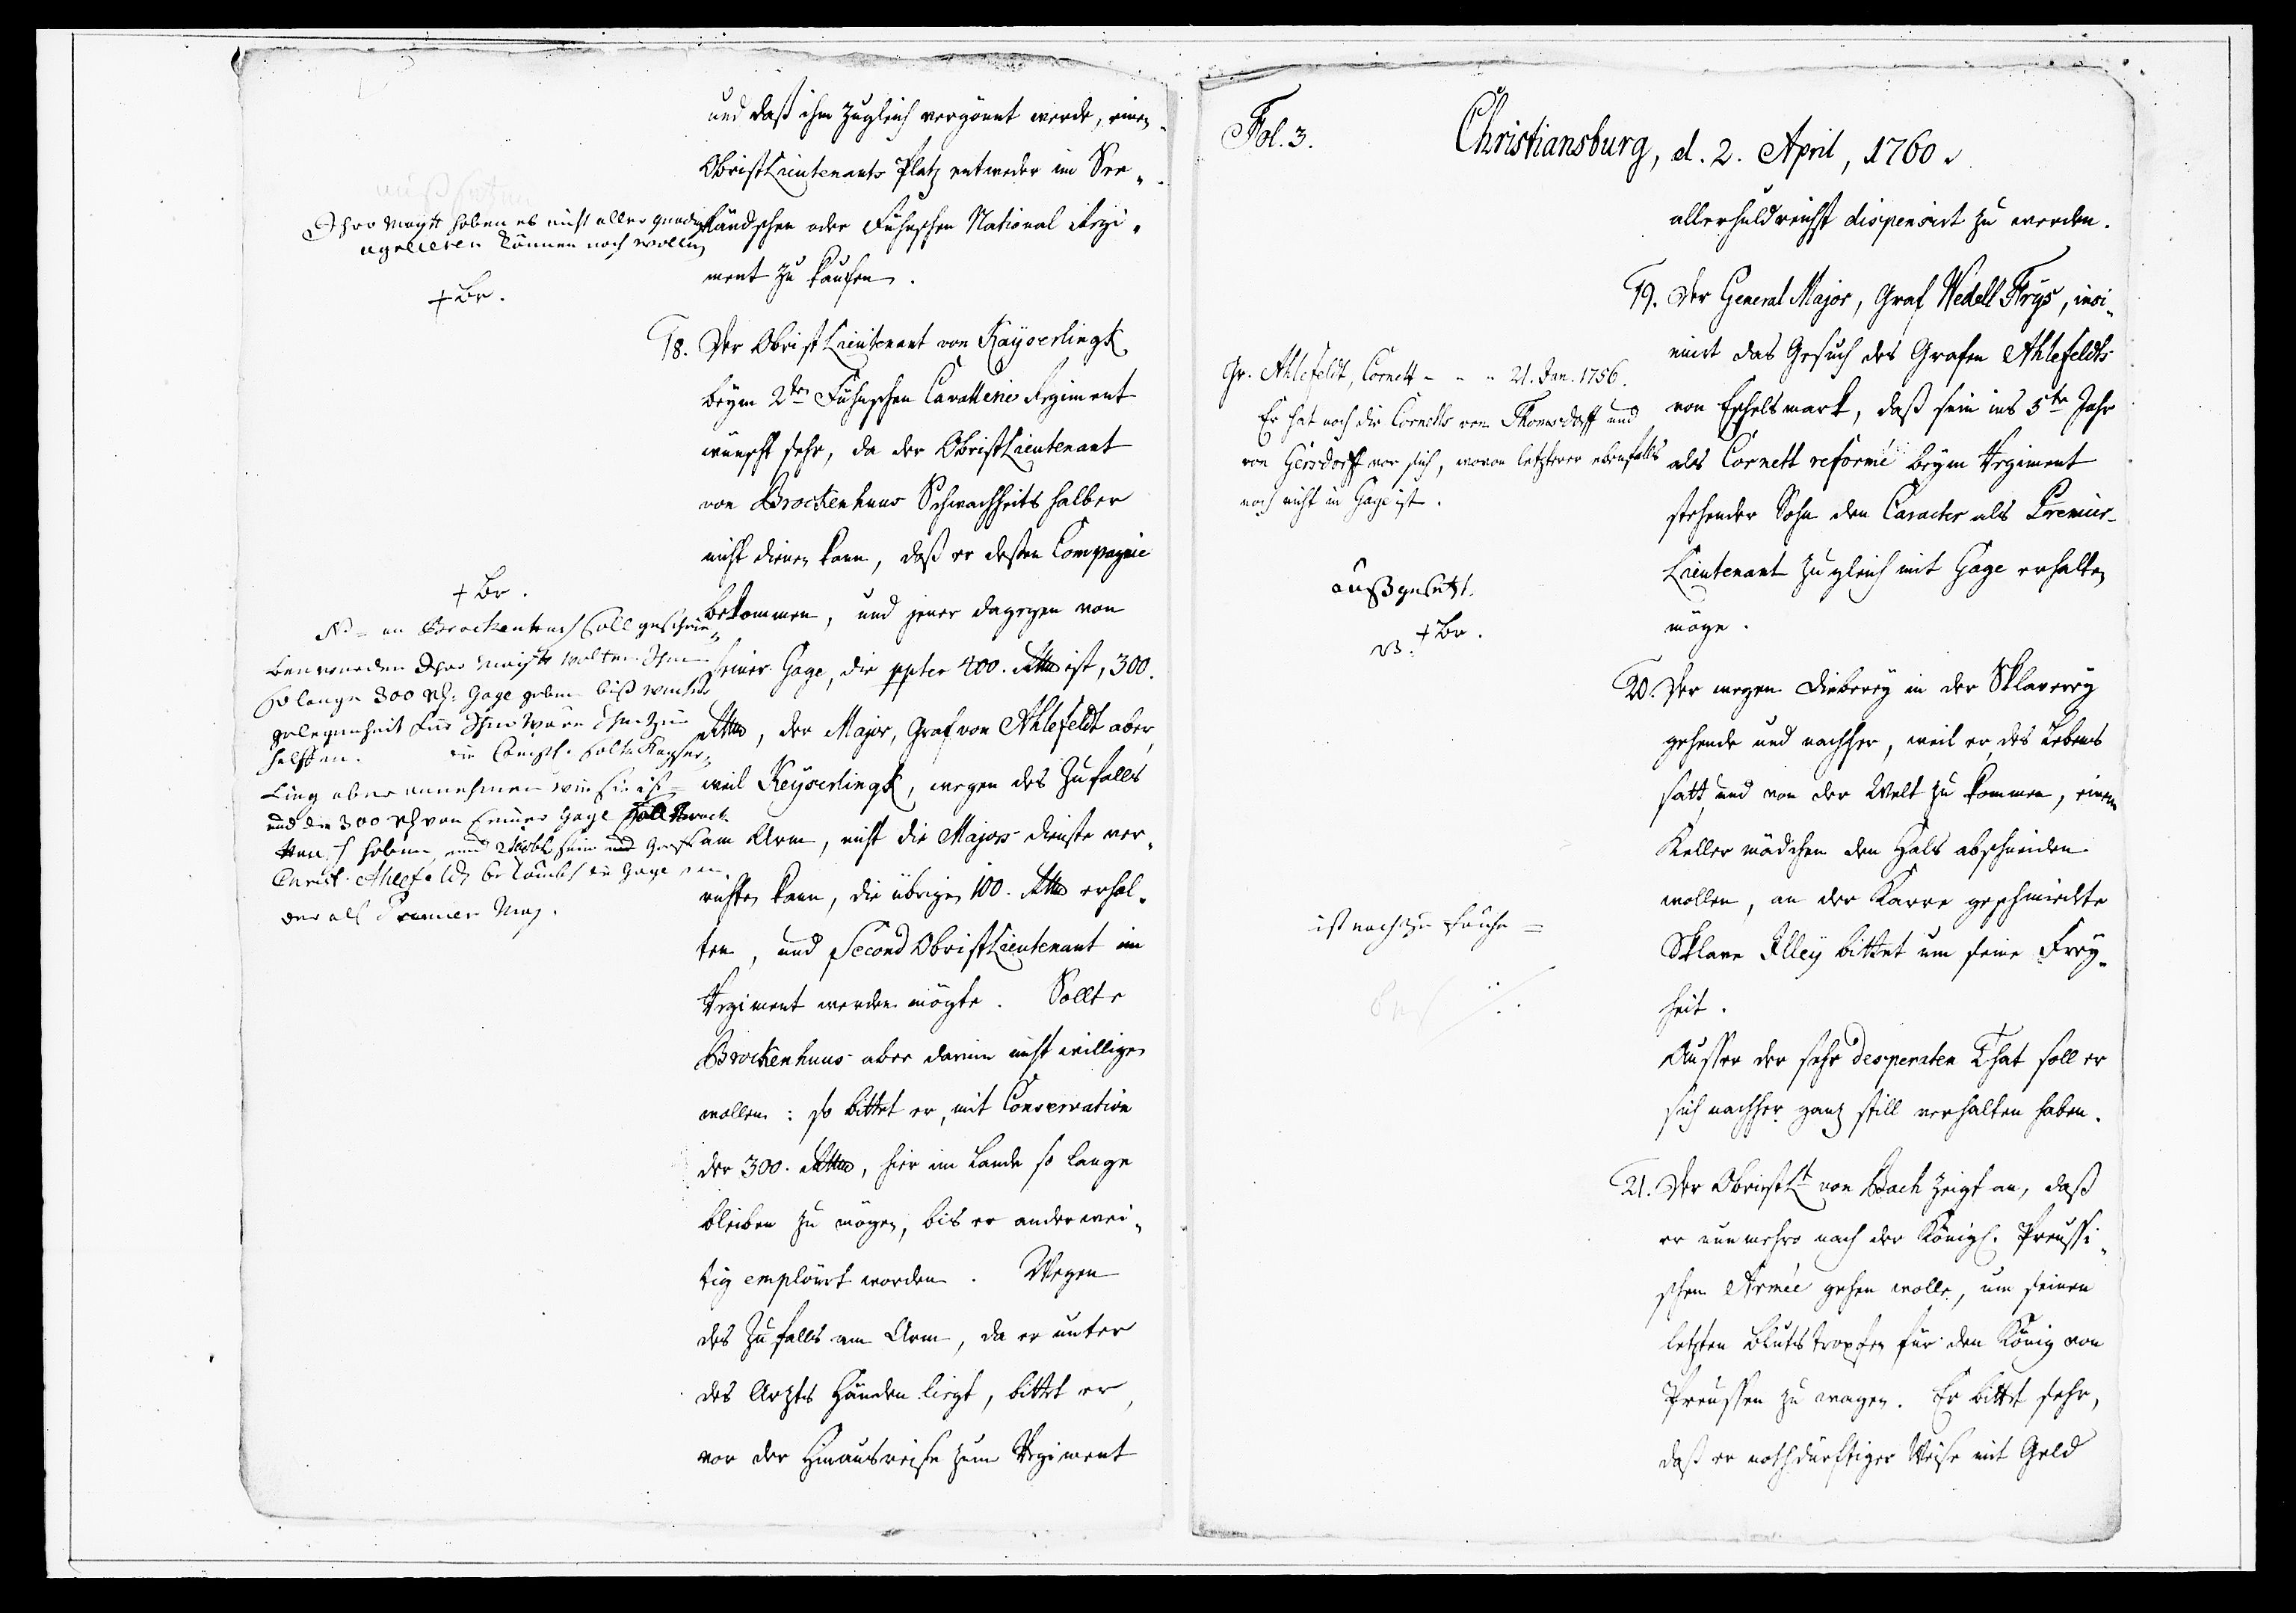 und daß ihm zugleich vergönnt werde, einen
ObristLieutenants Platz entweder im See„
ländschen oder Fühnschen National Regi„
ment zu kaufen.
Ihro Maytt haben es nicht aller gnädigst
agreieren können noch wollen
+ Br.
18. Der ObristLieutenant von Kayserlingk
beym 2ten Fühnschen Cavallerie Regiment
wünscht sehr, da der ObristLieutenant
von Brockenhuus Schwachheits halber
nicht dienen kann, daß er deßen Compagnie
bekommen, und jener dagegen von
seiner Gage, die ppter 400. Rthlr ist, 300.
Rthlr, der Major, Graf von Ahlefeldt aber,
weil Keyserlingk, wegen des Zufalls
am Arm, nicht die Majors-dienste ver„
richten kann, die übrigen 100. Rthlr erhal„
ten, und Second ObristLieutenant im
Regiment werden mögte. Sollte
Brockenhuus aber darein nicht willigen
wollen: so bittet er, mit Conservation
der 300. Rthlr, hier im Lande so lange
bleiben zu mögen, bis er anderwei„
tig emploirt worden. Wegen
des Zufalls am Arm, da er unter
des Arztes Händen liegt, bittet er,
vor der Hinausreise zum Regiment
+ Br.
an Brockenhuus soll geschrie„
ben werden Ihro Maystt wolten Ihm
so lange 300 Rh: Gage geben biß
gelegenheit für Ihm wäre Ihm zu
helffen.
ling aber annehmen wie sie ist =
und die 300 Rh von seiner Gage
haben und
Ahlefeldt
der als Premier Maj.
Fol. 3.
Christiansburg, d. 2. April, 1760.
allerhuldreichst dispensirt zu werden.
19. Der General Major, Graf Wedell Frys, insi„
nuirt das Gesuch des Grafen Ahlefeldts
von Eschelsmark, daß sein ins 5te Jahr
als Cornett reformé beym Regiment
stehender Sohn den Caracter als Premier-
Lieutenant zugleich mit Gage erhalten
möge.
Gr. Ahlefeldt, Cornett - - - 21. Jan. 1756.
Er hat noch die Cornetts von Thomsdorff und
von Gersdorff vor sich, wovon letzterer ebenfalls
noch nicht in Gage ist.
außgesetzt.
+ Br.
20. Der wegen Dieberey in der Sklaverey
gehende und nachher, weil er, des Lebens
satt, und von der Welt zu kommen, einem
Keller mädchen den Hals abschneiden
wollen, an der Karre geschmiedte
Sklave Illey bittet um seine Frey„
heit.
Ausser der sehr desperaten That soll er
sich nachher ganz still verhalten haben.
ist noch zu frühe =
21. Der ObristLt von Bach zeigt an, daß
er nunmehro nach der Königl. Preussi„
schen Armée gehen wolle, um seinen
letzten Blutstropfen für den König von
Preussen zu wagen. Er bittet sehr,
daß er nothdürftiger Weise mit Geld